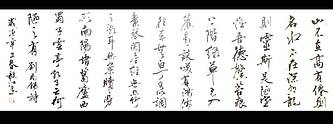 山不在高有僊則
名水不在深有龍
則靈斯是陋室
惟吾德馨苔痕
上階綠草色入
簾青談笑有鴻儒
往來無白丁可以調
素琴閱金經無絲竹
之亂耳無案牘之勞
形南陽諸葛廬西
蜀子雲亭孔子云何
陋之有劉禹錫詩